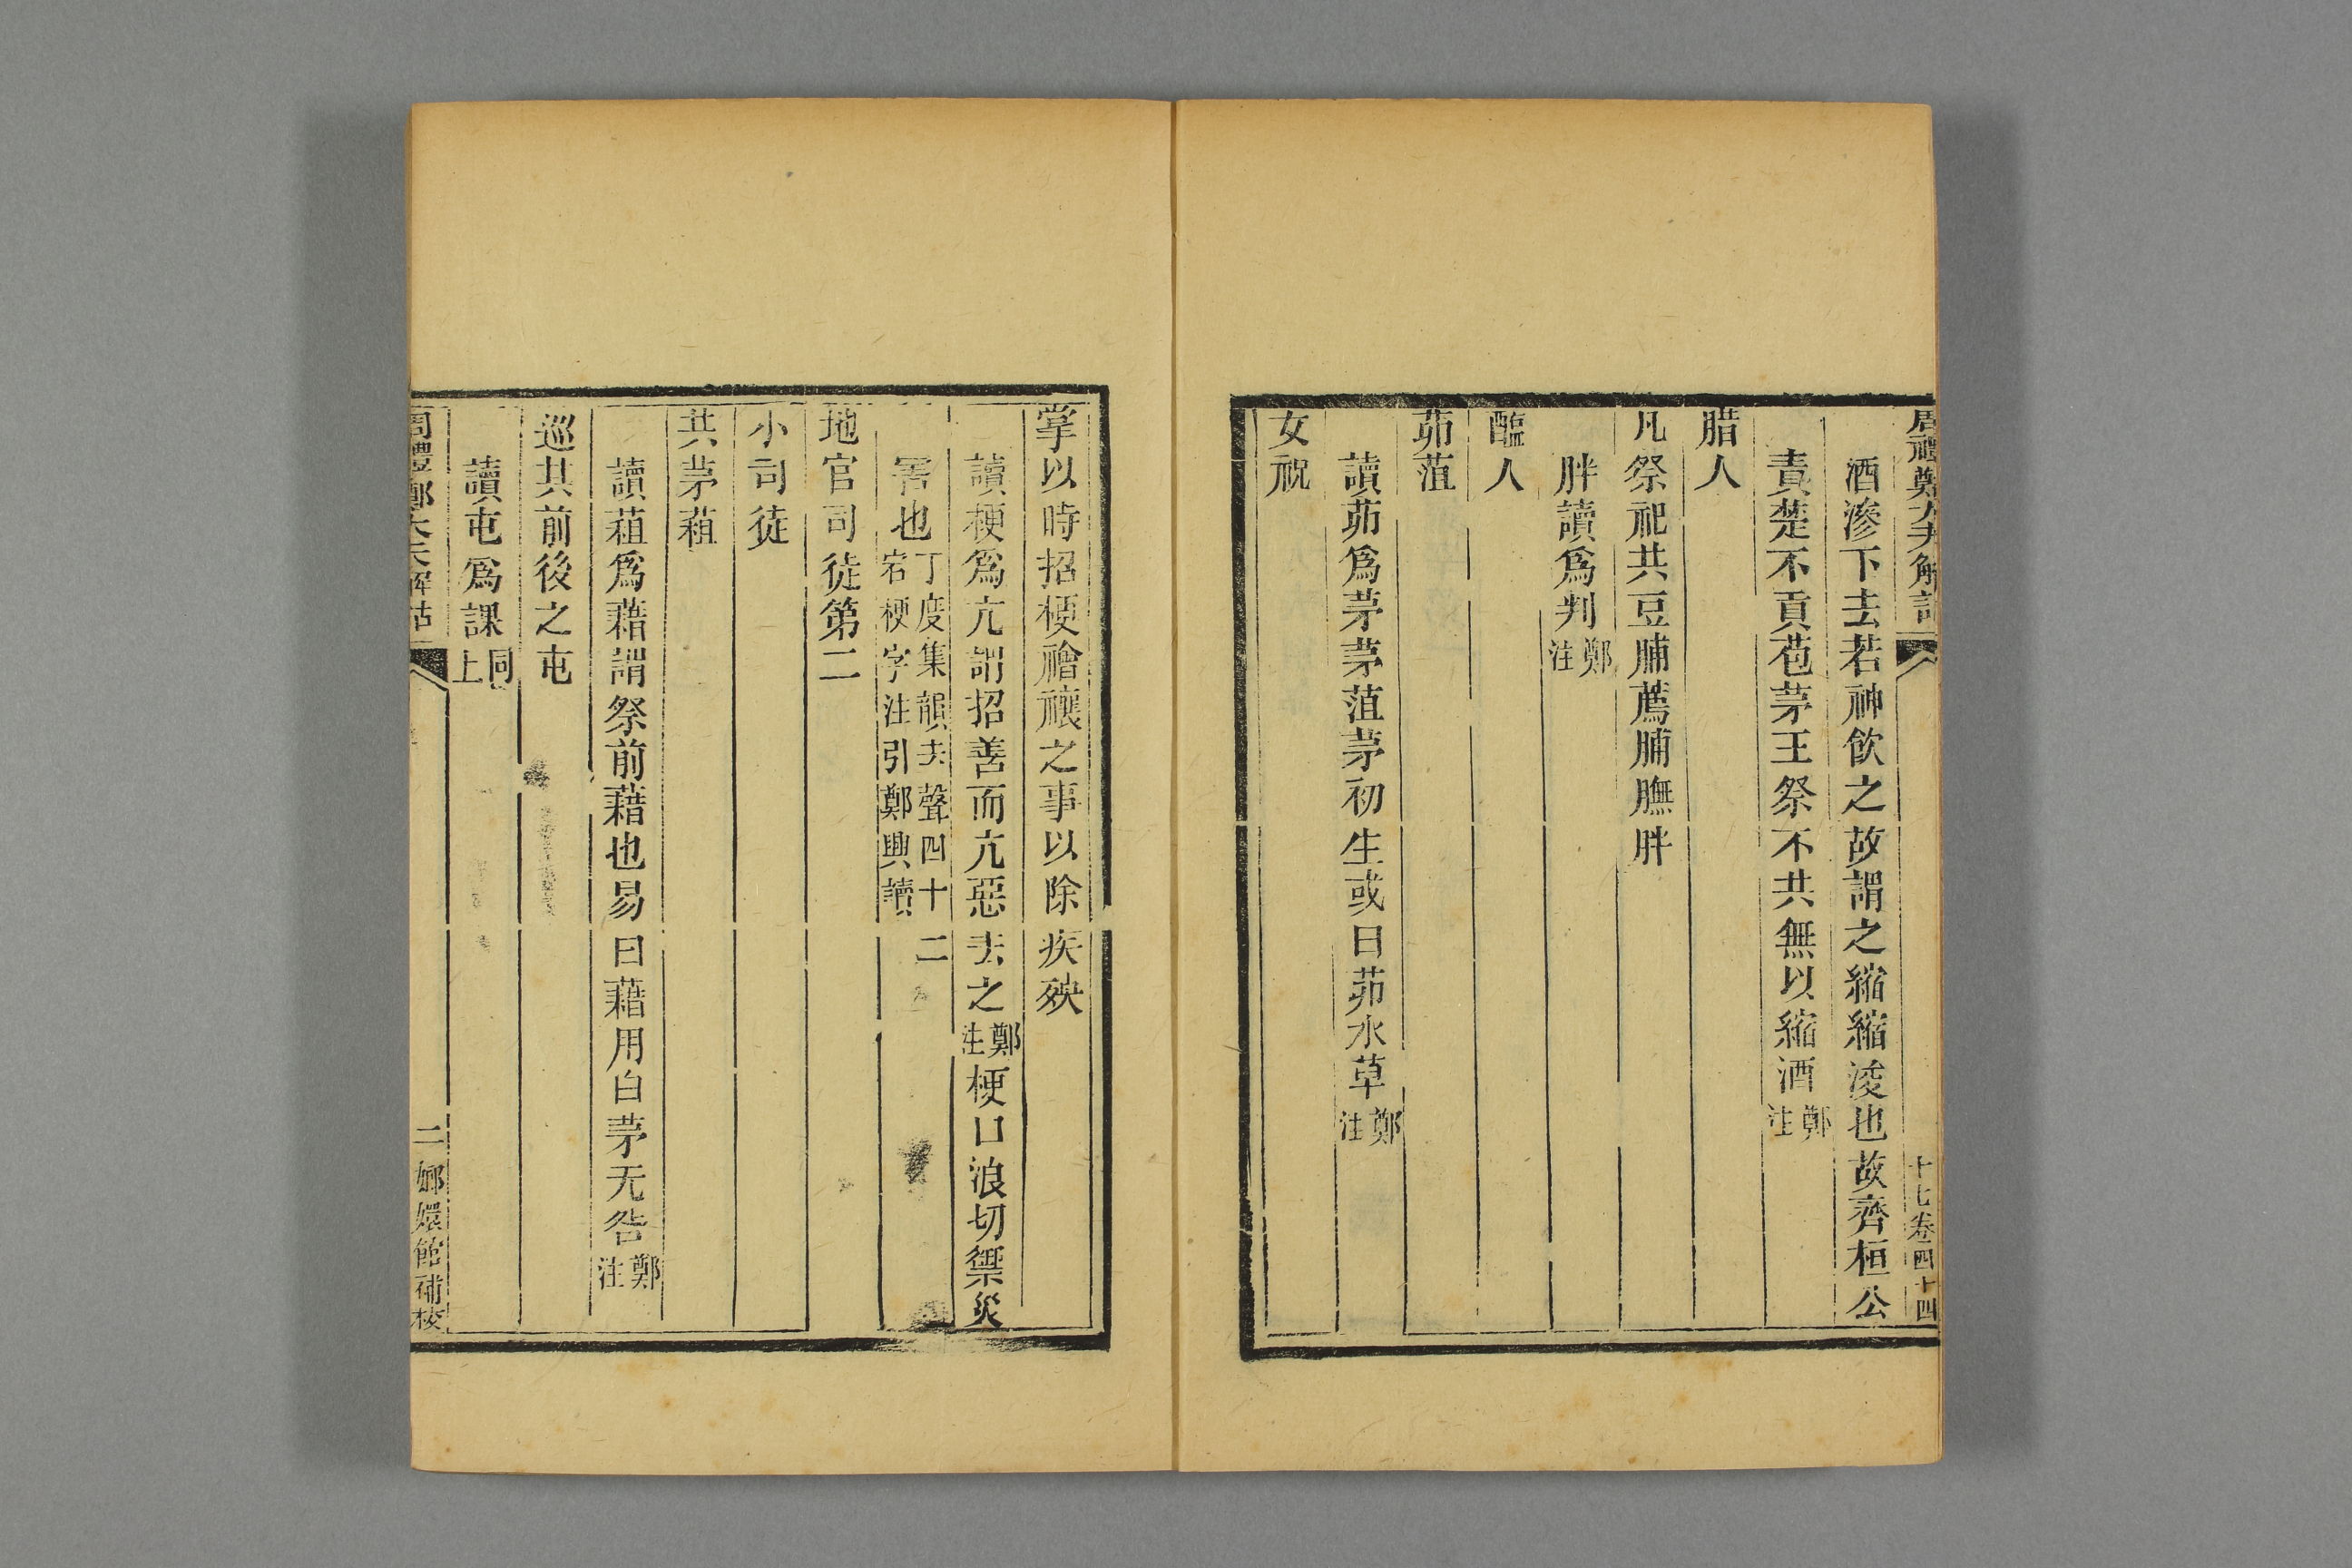 周禮鄭大夫解詁 十七卷四十四
酒滲下去若神飲之故謂之縮縮浚也故齊桓公
責楚不貢苞茅王祭不共無以縮酒鄭注
腊人
凡祭祀共豆脯薦脯膴胖
胖讀爲判鄭注
醢人
茆菹
讀茆爲茅茅菹茅初生或曰茆水草鄭注
女祝
掌以時招梗禬禳之事以除疾殃
讀梗爲亢謂招善而亢惡去之鄭注梗口浪切禦災
害也丁度集韻去聲四十二宕梗字注引鄭興讀
地官司徒第二
小司徒
共茅蒩
讀蒩爲藉謂祭前藉也易曰藉用白茅无咎鄭注
巡其前後之屯
讀屯爲課同上
周禮鄭大夫解詁 二 嫏嬛館補校